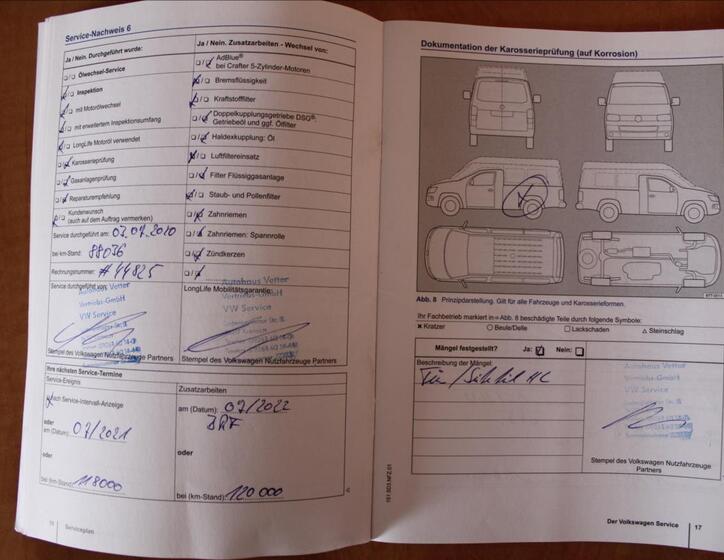 Service-Nachweis 6
Ja / Nein. Durchgeführt wurde:
Ölwechsel-Service
Inspektion
mit Motorölwechsel
mit erweitertem Inspektionsumfang
LongLife Motoröl verwendet
Karosserieprüfung
Gasanlagenprüfung
Reparaturempfehlung
Kundenwunsch
(auch auf dem Auftrag vermerken)
Service durchgeführt am: 03.07.2020
bei km-Stand: 88036
Rechnungsnummer: #44825
Service durchgeführt von:
Autohaus Vetter
Vertriebs-GmbH
VW Service
Stempel des Volkswagen Nutzfahrzeuge Partners
Ja / Nein. Zusatzarbeiten - Wechsel von:
AdBlue®
bei Crafter 5-Zylinder-Motoren
Bremsflüssigkeit
Kraftstofffilter
Doppelkupplungsgetriebe DSG®:
Getriebeöl und ggf. Ölfilter
Haldexkupplung: Öl
Luftfiltereinsatz
Filter Flüssiggasanlage
Staub- und Pollenfilter
Zahnriemen
Zahnriemen: Spannrolle
Zündkerzen
LongLife Mobilitätsgarantie:
Autohaus Vetter
Vertriebs-GmbH
VW Service
Stempel des Volkswagen Nutzfahrzeuge Partners
Ihre nächsten Service-Termine
Service-Ereignis
nach Service-Intervall-Anzeige
oder
am (Datum): 07/2021
oder
bei (km-Stand): 118000
Zusatzarbeiten
am (Datum): 07/2022
BRF
oder
bei (km-Stand): 120 000
Serviceplan
Dokumentation der Karosserieprüfung (auf Korrosion)
Abb. 8 Prinzipdarstellung. Gilt für alle Fahrzeuge und Karosserieformen.
Ihr Fachbetrieb markiert in ⇒ Abb. 8 beschädigte Teile durch folgende Symbole:
× Kratzer ○ Beule/Delle □ Lackschaden △ Steinschlag
Mängel festgestellt? Ja: Nein:
Beschreibung der Mängel:
Autohaus Vetter
Vertriebs-GmbH
VW Service
Stempel des Volkswagen Nutzfahrzeuge
Partners
Der Volkswagen Service 17